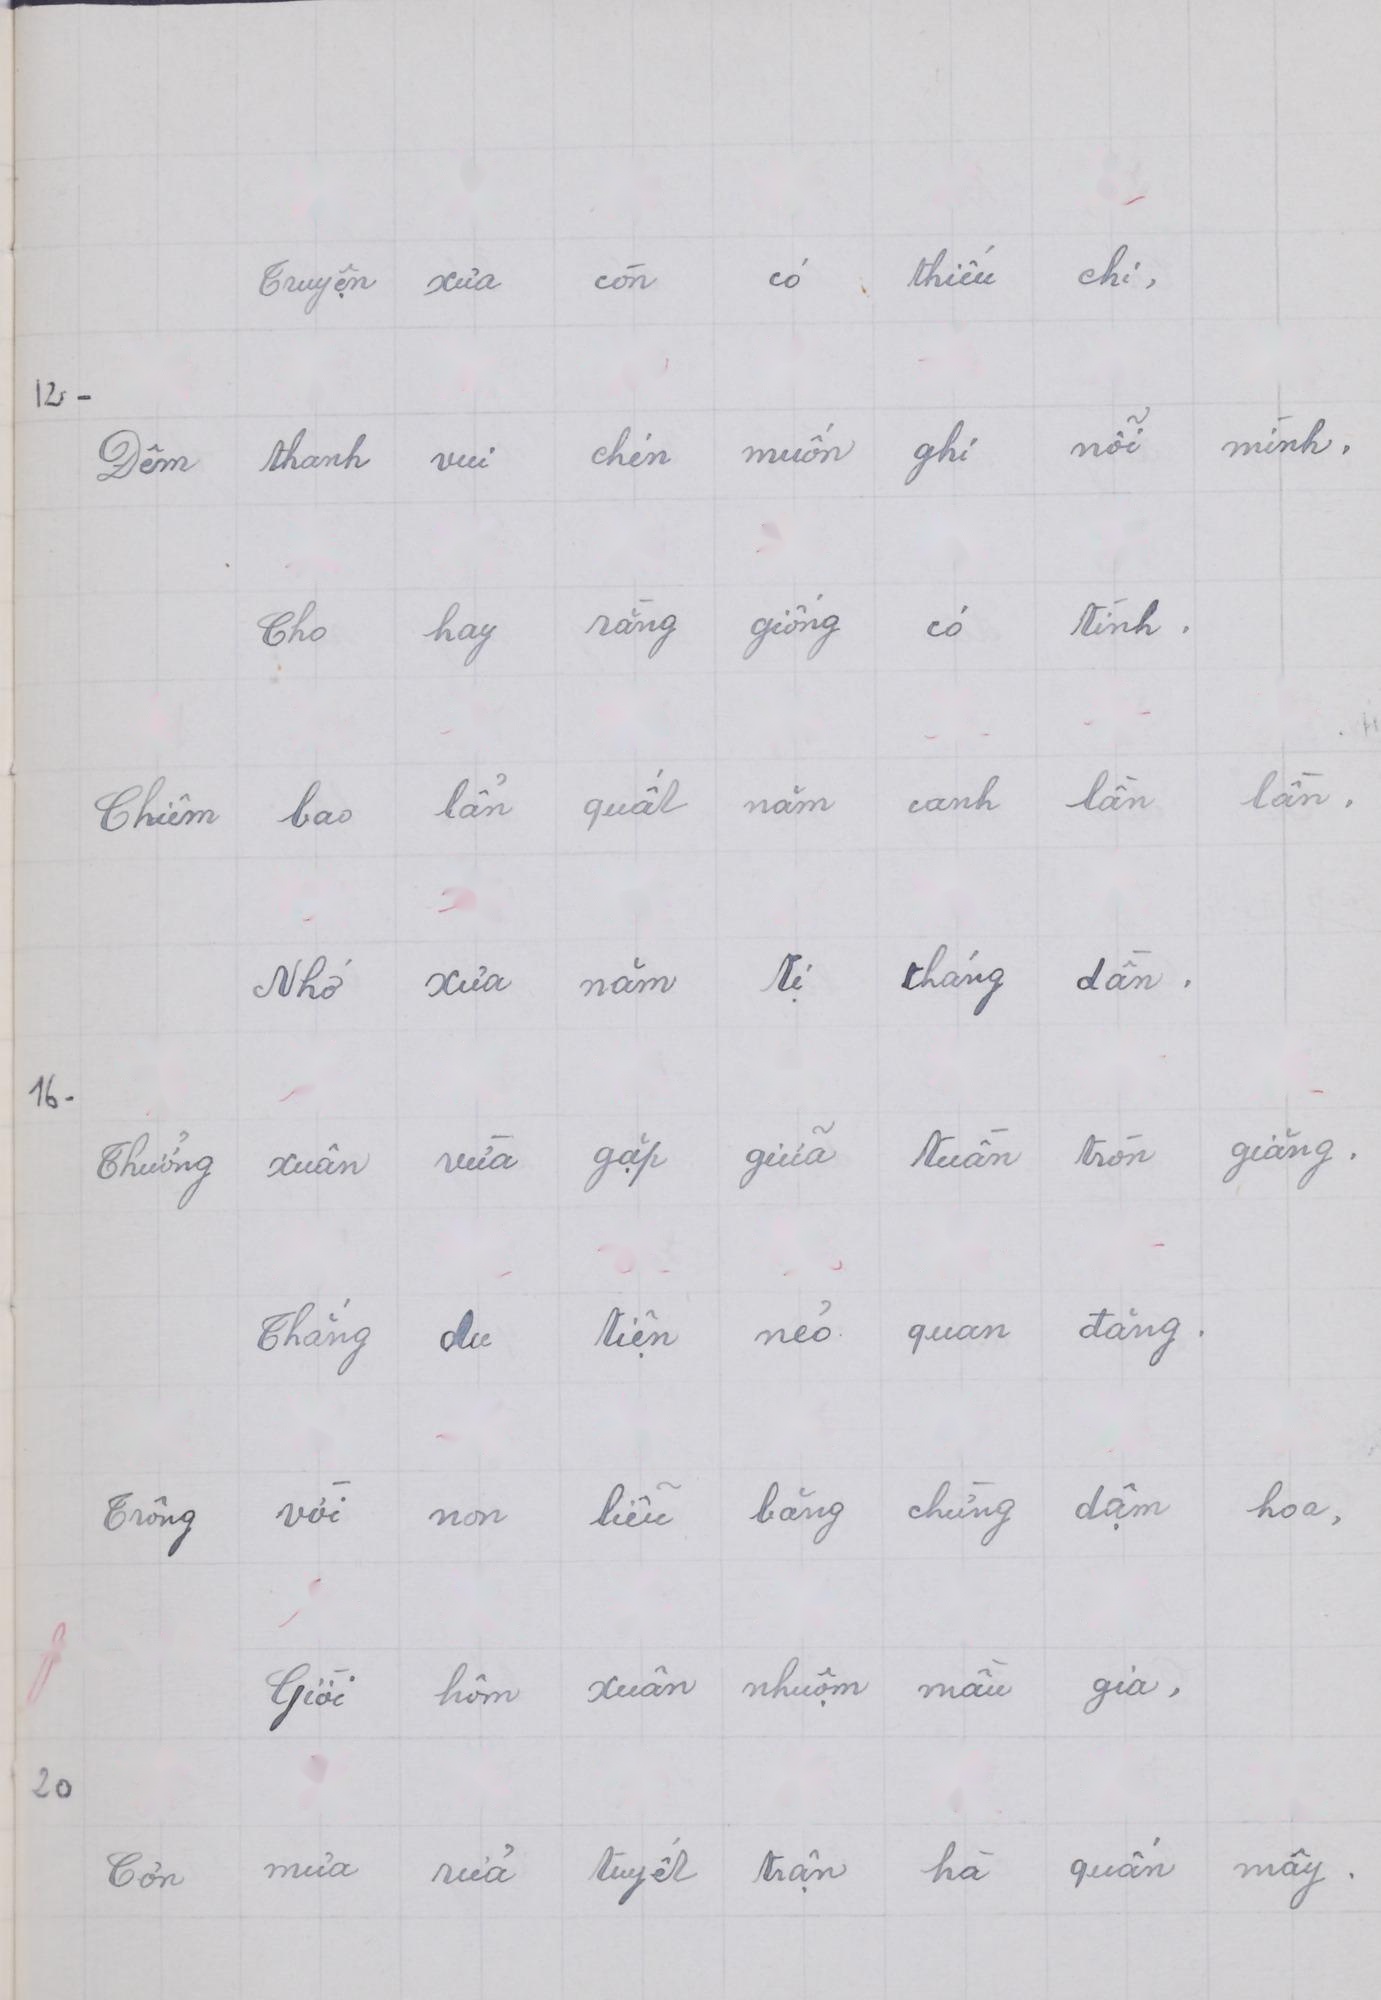 Truyện xưa còn có thiếu chi,
12-
Đêm thanh vui chén muốn ghi nỗi mình.
Cho hay rằng giống có tình.
Chiêm bao lẩn quất năm canh lần lần.
Nhớ xưa năm tị tháng dần.
16-
Thưởng xuân vừa gặp giữa tuần tròn giăng.
Thắng du tiện nẻo quan đăng.
Trông vời non liễu bằng chừng dậm hoa,
Giời hôm xuân nhuộm mầu già,
20
Cơn mưa rửa tuyết trận hà quấn mây.